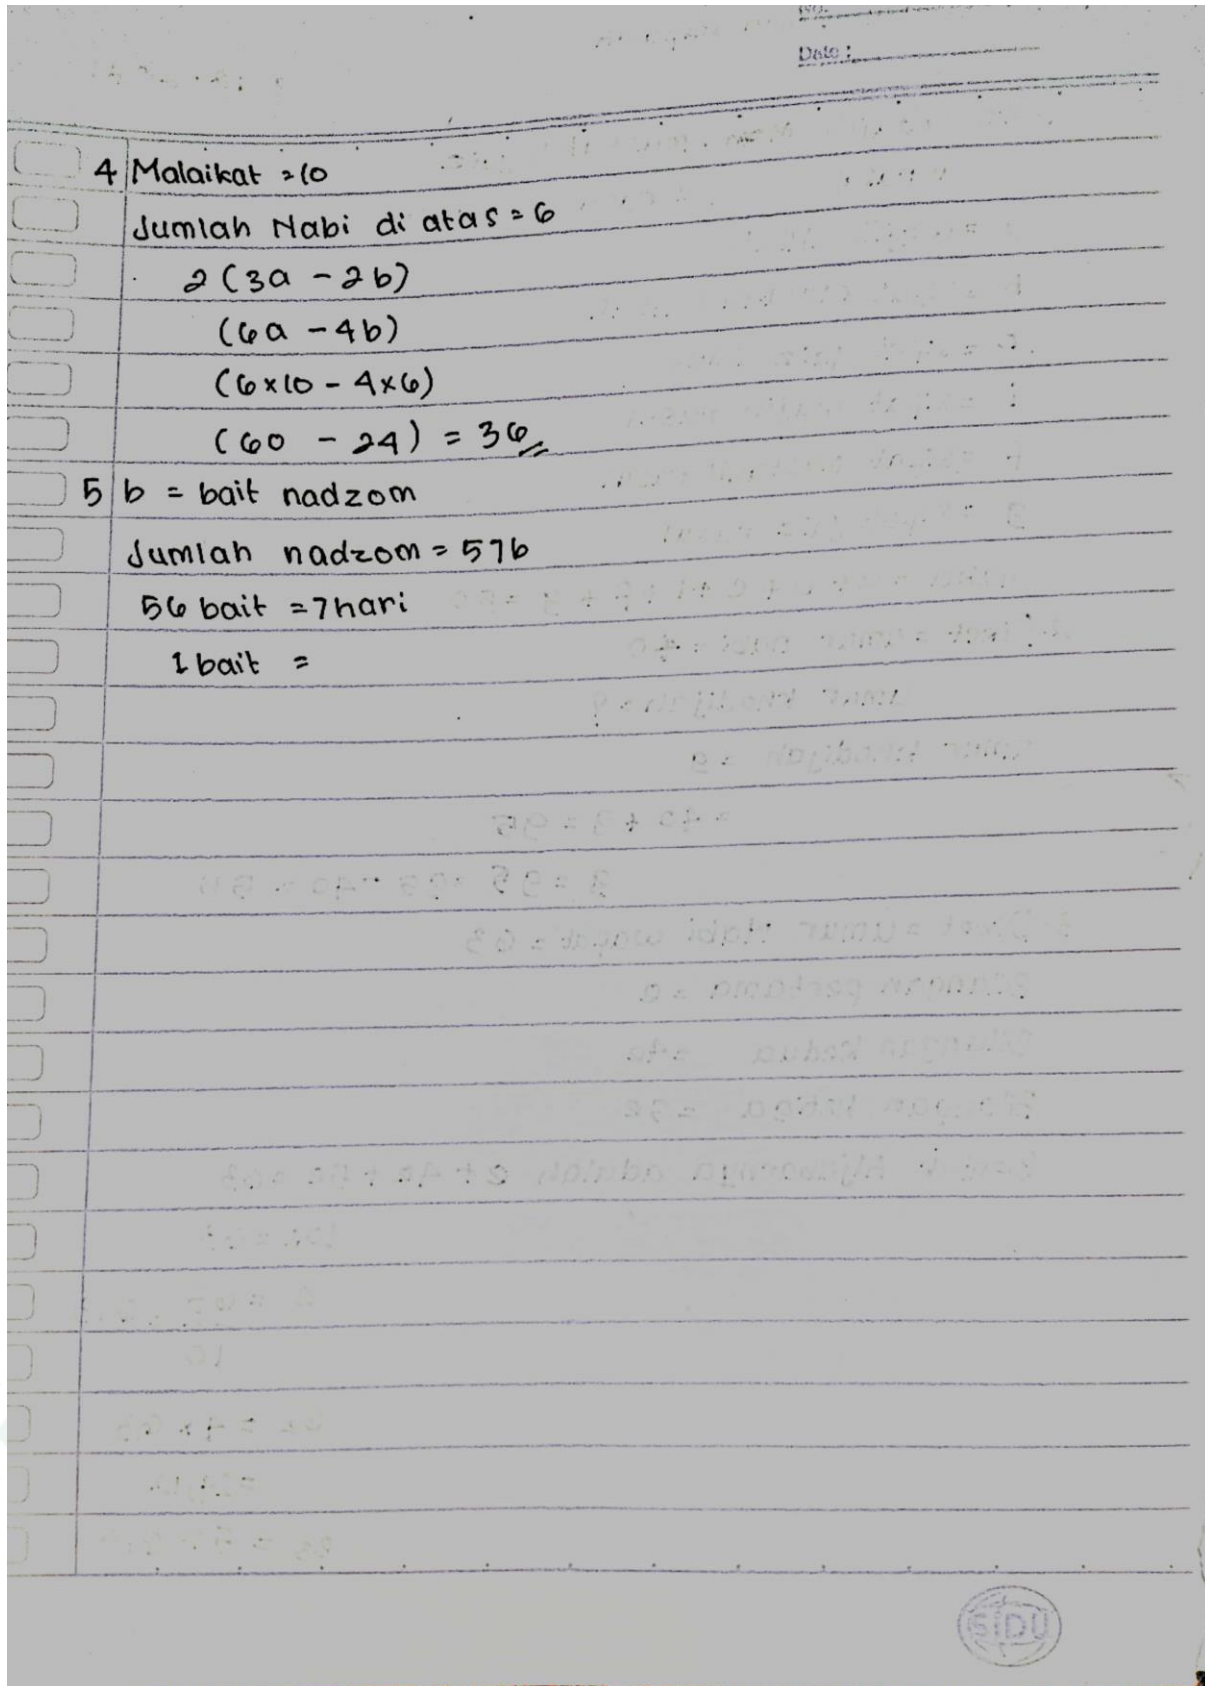 Date :
4 Malaikat = 10
Jumlah Nabi di atas = 6
2 (3a - 2b)
(6a - 4b)
(6x10 - 4x6)
(60 - 24) = 36
5 b = bait nadzom
Jumlah nadzom = 576
56 bait = 7 hari
1 bait =
SIDU